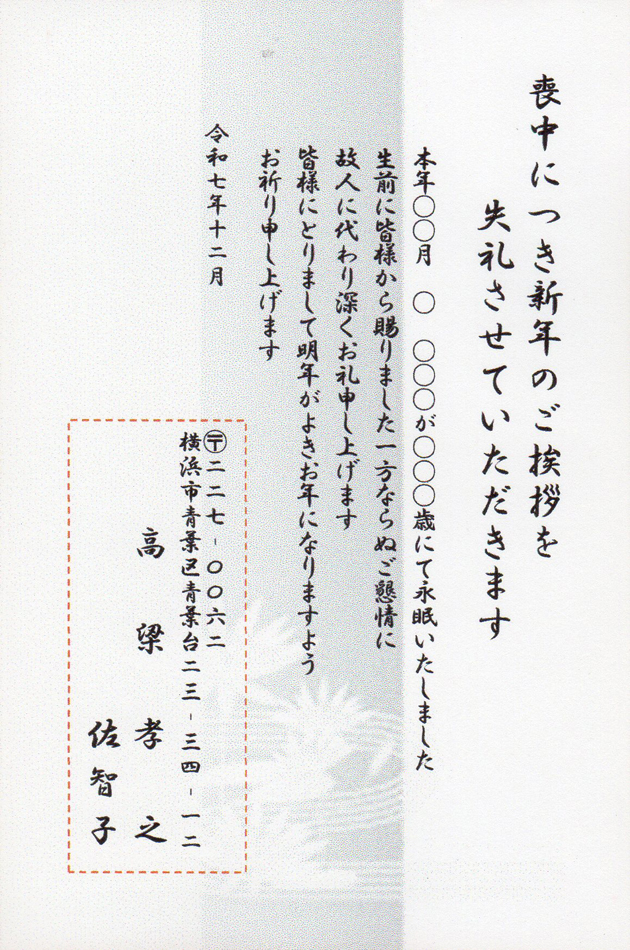 喪中につき新年のご挨拶を
失礼させていただきます
本年〇〇月 〇 〇〇〇が〇〇〇歳にて永眠いたしました
生前に皆様から賜りました一方ならぬご懇情に
故人に代わり深くお礼申し上げます
皆様にとりまして明年がよきお年になりますよう
お祈り申し上げます
令和七年十二月
〒二二七-〇〇六二
横浜市青葉区青葉台二三-三四-一二
高梁孝之
佐智子